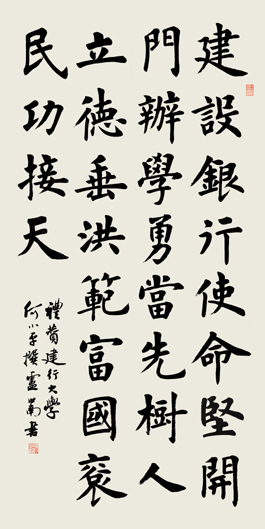 建設銀行使命堅開
門辦學勇當先樹人
立德垂洪範富國裕
民功接天
禮贊建行大學
何小平撰書